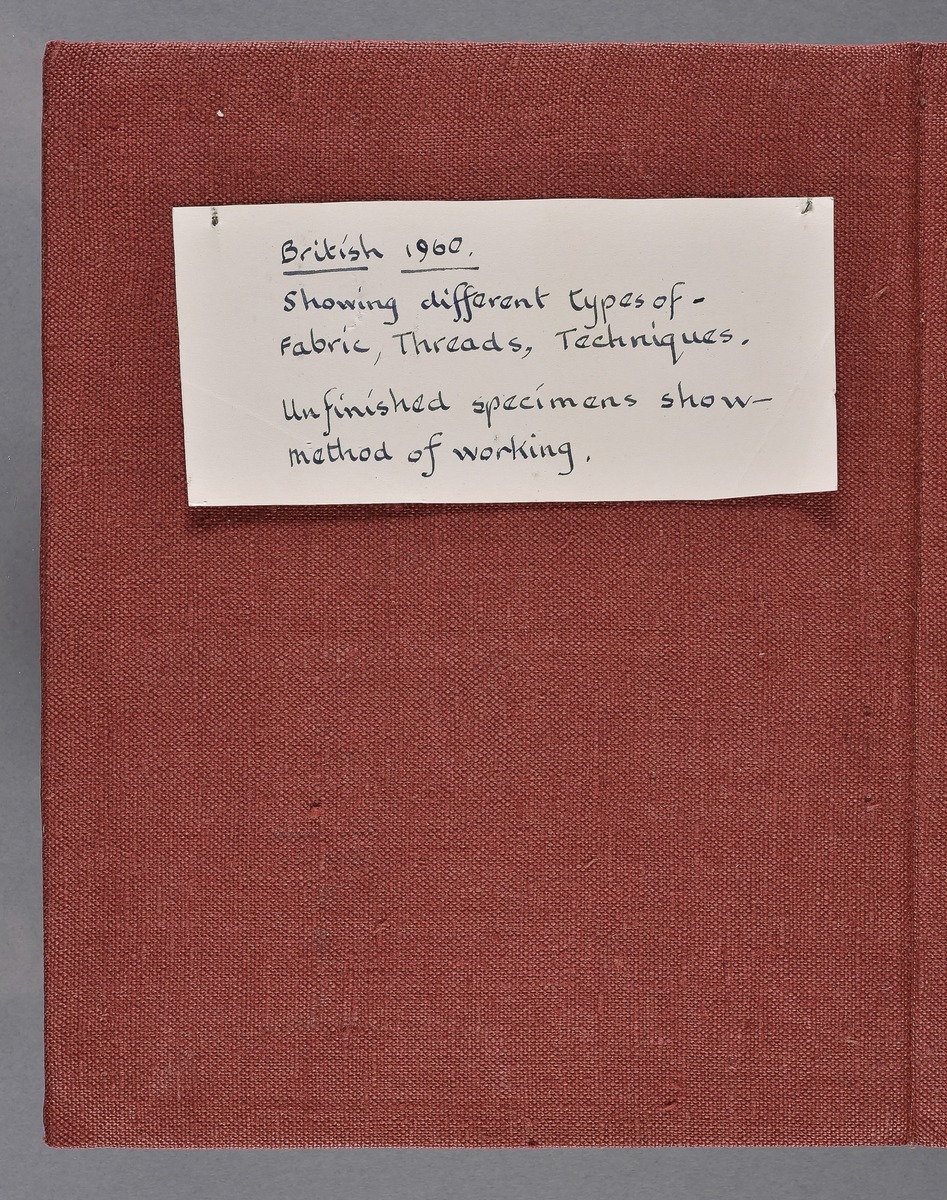 British 1960.
Showing different types of -
Fabric, Threads, Techniques.
Unfinished specimens show—
method of working.